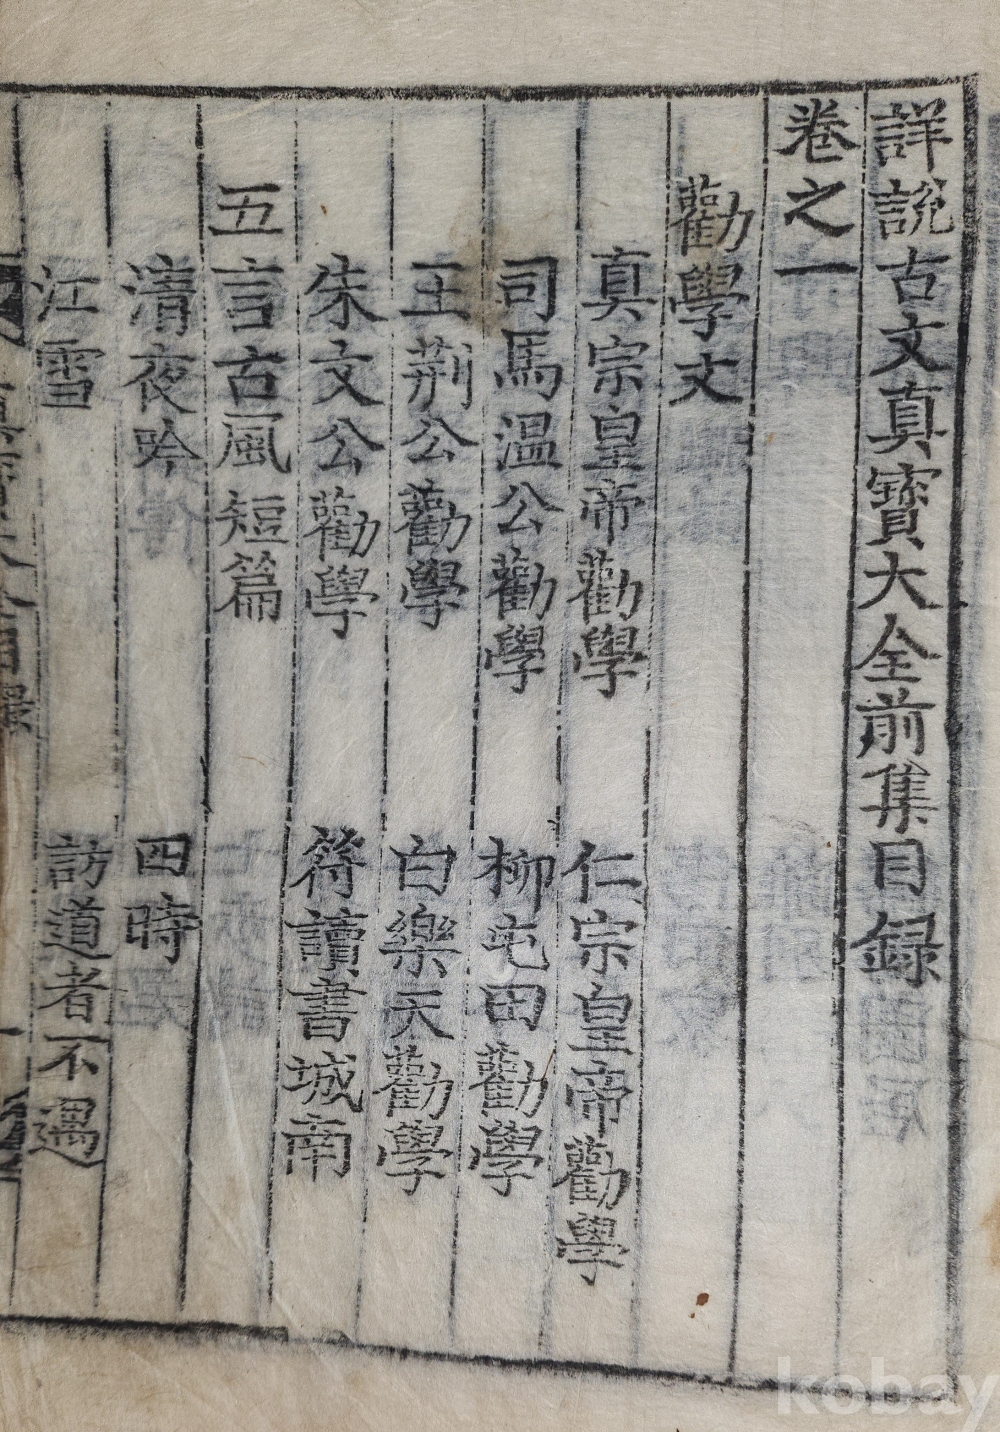 詳説古文真寶大全前集目録
卷之一
勸學文
真宗皇帝勸學 仁宗皇帝勸學
司馬温公勸學 柳屯田勸學
王荆公勸學 白樂天勸學
朱文公勸學 符讀書城南
五言古風短篇
清夜吟 四時
江雪 訪道者不遇
kobay